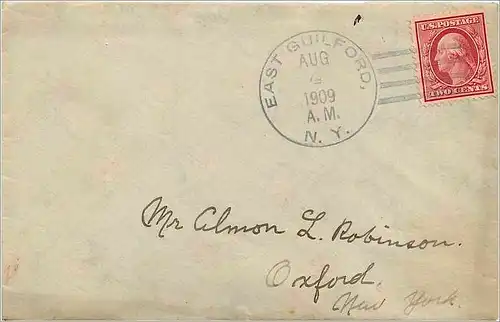 U.S.POSTAGE
TWO CENTS
EAST GUILFORD,
AUG
1909
A.M.
N. Y.
Mr Almon L. Robinson.
Oxford.
New York.